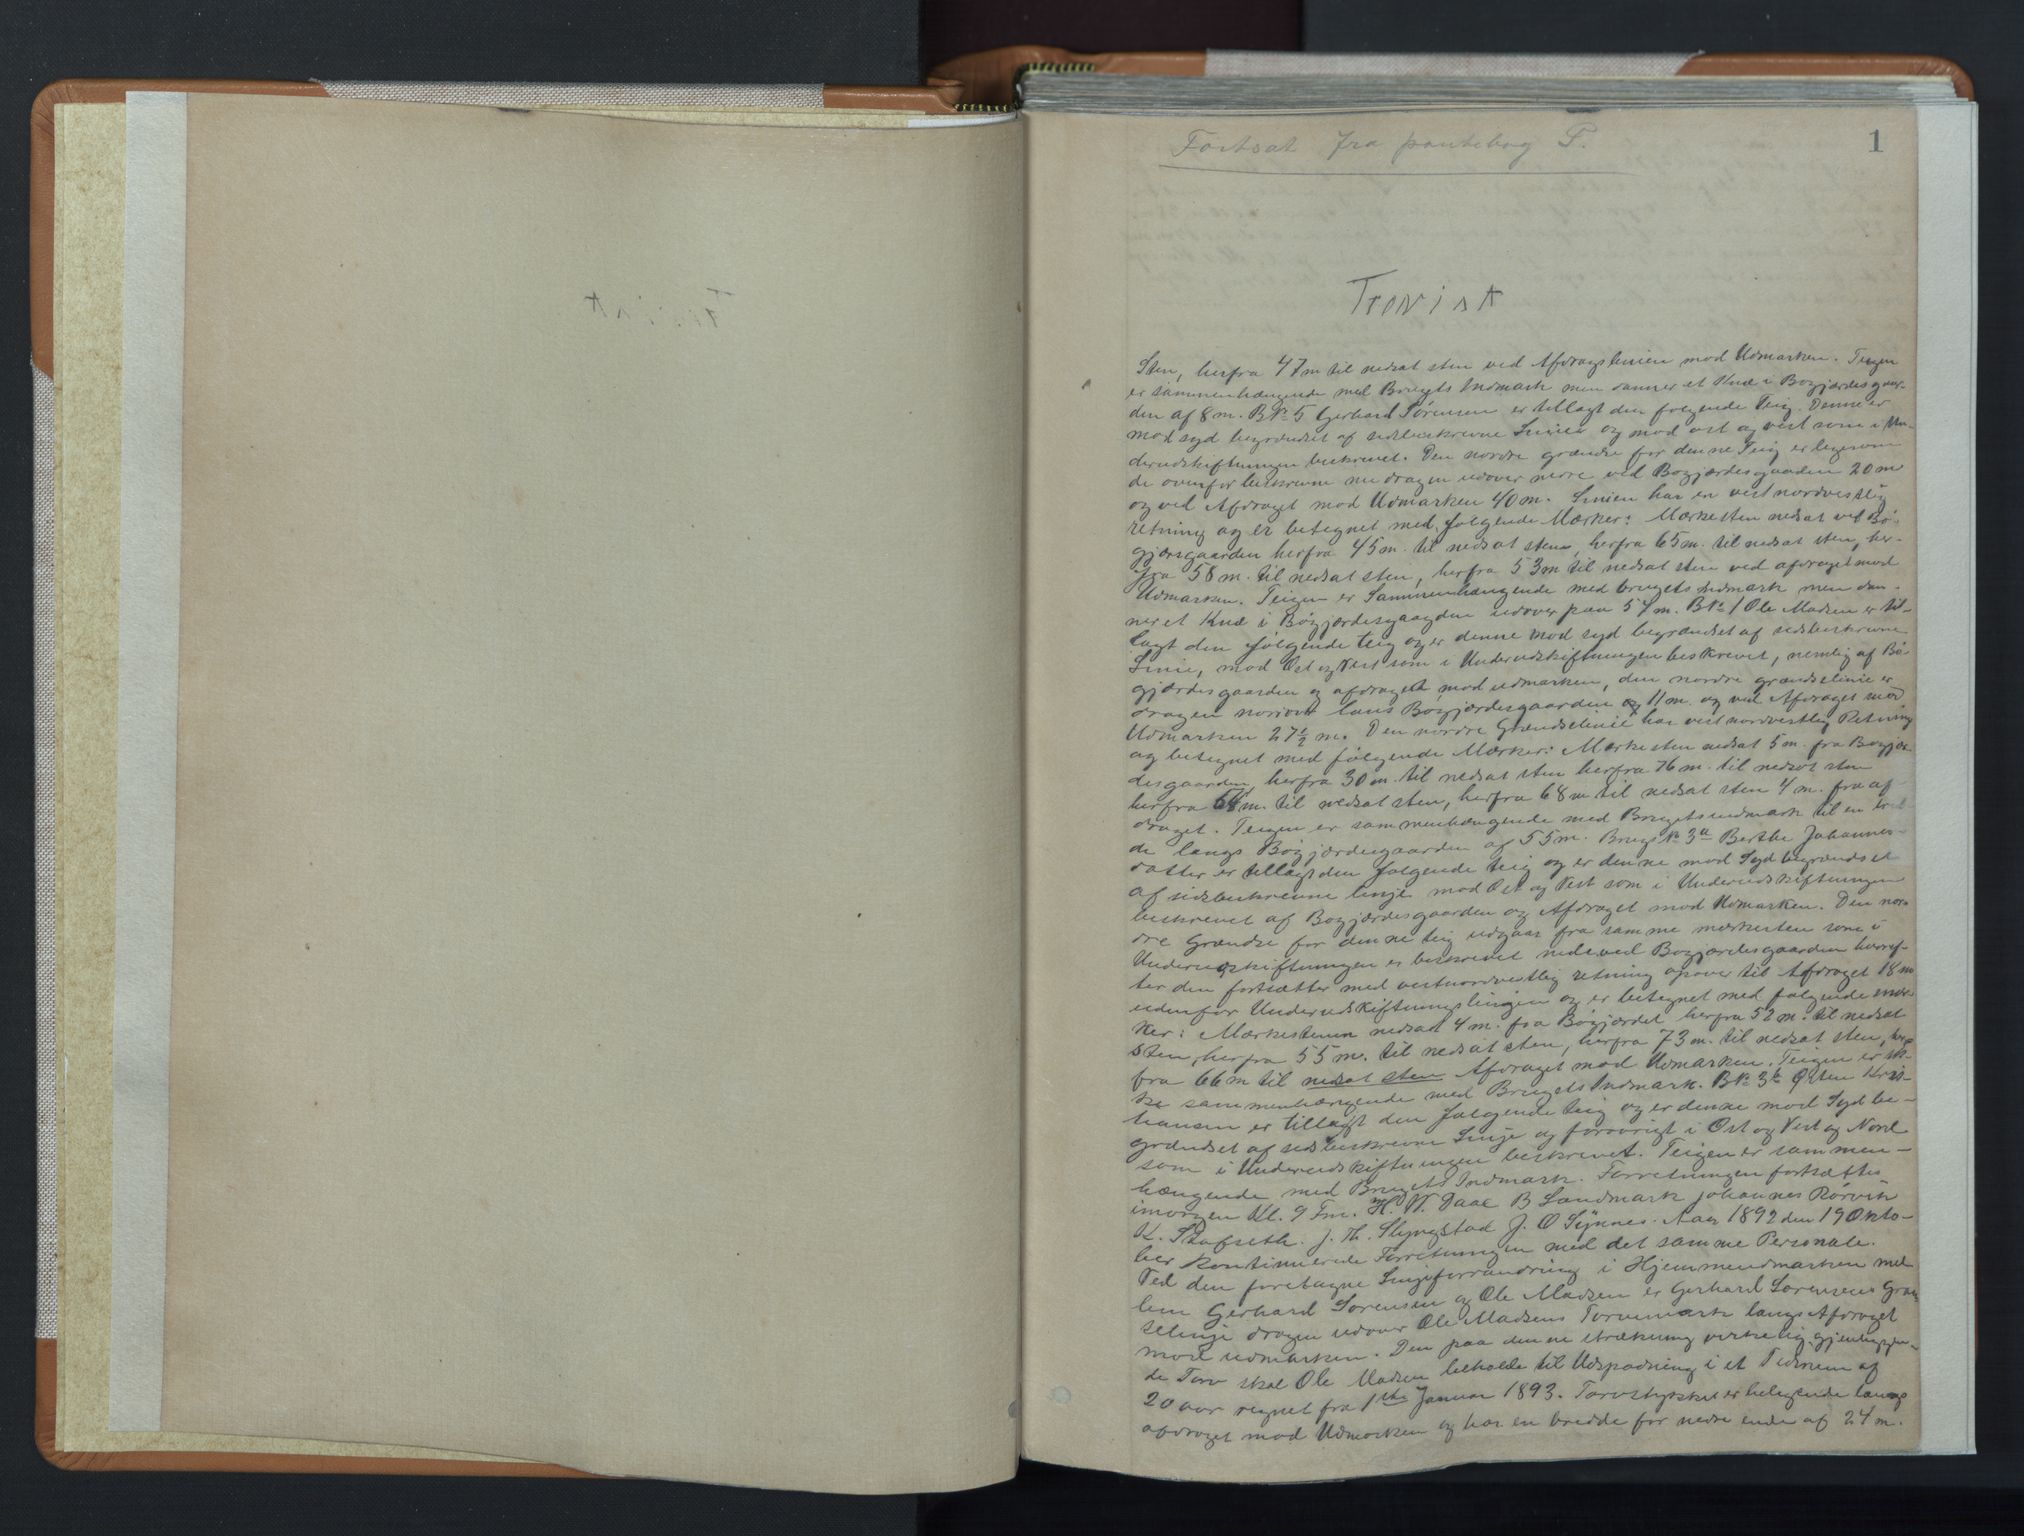 Fortsat fra pantebog T.
1
Sten, herfra 47 m til nedsat sten ved Afdragslinien mod Udmarken. Teigen
er sammenhængende med Brugts Indmark men danner et Knæ i Bøgjærdesgaar-
den af 8 m. B No 5 Gerhard Sørensen er tillagt den følgende Teig. Denne er
mod syd begrændset af sidstbeskrevne Linie og mod ost og vest som i Un-
derudskiftningen beskrevet. Den nordre grændse for denne Teig er ligesom
de ovenfor beskrevne nu dragen udover nerre ved Bøgjærdesgaarden 20 m
og ved Afdraget mod Udmarken 40 m. Linien har en vestnordvestlig
retning og er betegnet med følgende Mærker: Mærkesten nedsat ved Bø-
gjærsgaarden herfra 45 m. til nedsat sten, herfra 65 m. til nedsat sten, her-
fra 58 m. til nedsat sten, herfra 53 m til nedsat sten ved afdraget mod
Udmarken. Teigen er Sammenhængende med brugets Indmark men dan-
ner et Knæ i Bøgjærdesgaagden udover paa 57 m. B No 1 Ole Madsen er til-
lagt den følgende teig og er denne mod syd begrændset af sidstbeskrevne
Linie, mod Ost og Vest som i Underudskiftningen beskrevet, nemlig af Bø-
gjærdesgaarden og afdraget mod udmarken, den nordre grændselinie er
dragen nordover langs Bøgjærdesgaarden 11 m. og ved Afdraget mod
Udmarken 27 1/2 m. Den nordre Grændselinie har vestnordvestlig Retning
og betegnet med følgende Mærker: Mærkesten nedsat 5 m. fra Bøgjær-
desgaarden, herfra 30 m. til nedsat sten herfra 76 m. til nedsat sten
herfra m. til nedsat sten, herfra 68 m til nedsat sten 4 m. fra af-
draget. Teigen er sammenhængende med Brugets indmark til en bred-
de langs Bøgjærdesgaarden af 55 m. Brugs No 3a Berthe Johannes-
datter er tillagt den følgende teig og er denne mod Syd begrændset
af sidstbeskrevne linje mod Ost og Vest som i Underudskiftningen
beskrevet af Bøgjærdesgaarden og Afdraget mod Udmarken. Den nor-
dre Grændse for denne teig udgaar fra samme mærkesten som i
Underudskiftningen er beskrevet nede ved Bøgjærdesgaarden hvoref-
ter den fortsætter med vestnordvestlig retning opover til Afdraget 18 m
udenfor Underudskiftningslingen og er betegnet med følgende mær-
ker: Mærkestenen nedsat 4 m. fra Bøgjærdet herfra 52 m. til nedsat
sten, herfra 55 m. til nedsat sten, herfra 73 m. til nedsat sten, her-
fra 66 m til nedsat sten Afdraget mod Udmarken. Teigen er ik-
ke sammenhængende med Brugets Indmark. B No 3b Østen Kris-
tiansen er tillagt den følgende teig og er denne mod Syd be-
grændset af sidstbeskrevne Linje og forøvrigt i Ost og Vest og Nord
som i Underudskiftningen beskrevet. Teigen er sammen-
hængende med Brugets Indmark. Forretningen fortsættes
imorgen Kl. 9 Fm. H. W. Daae B Landmark Johannes Rørvik
K. Stafseth. J. Th. Slyngstad J. O Synnes. Aar 1892 den 19 Okto-
ber kontinuerede Forretningen med det samme Personale.
Ved den foretagne Linjeforrandring i Hjemmeudmarken mel-
lem Gerhard Sørensen og Ole Madsen er Gerhard Sørensens Græn-
selinje dragen udover Ole Madsens Torvemark langs Afdraget
mod udmarken. Den paa denne strækning gjenliggen-
de Torv skal Ole Madsen beholde til Udspadning i et Tidsrum af
20 aar regnet fra 1ste Januar 1893. Torvstykket er beligende langs
afdraget mod Udmarken og har en bredde for nedre ende af 24 m.